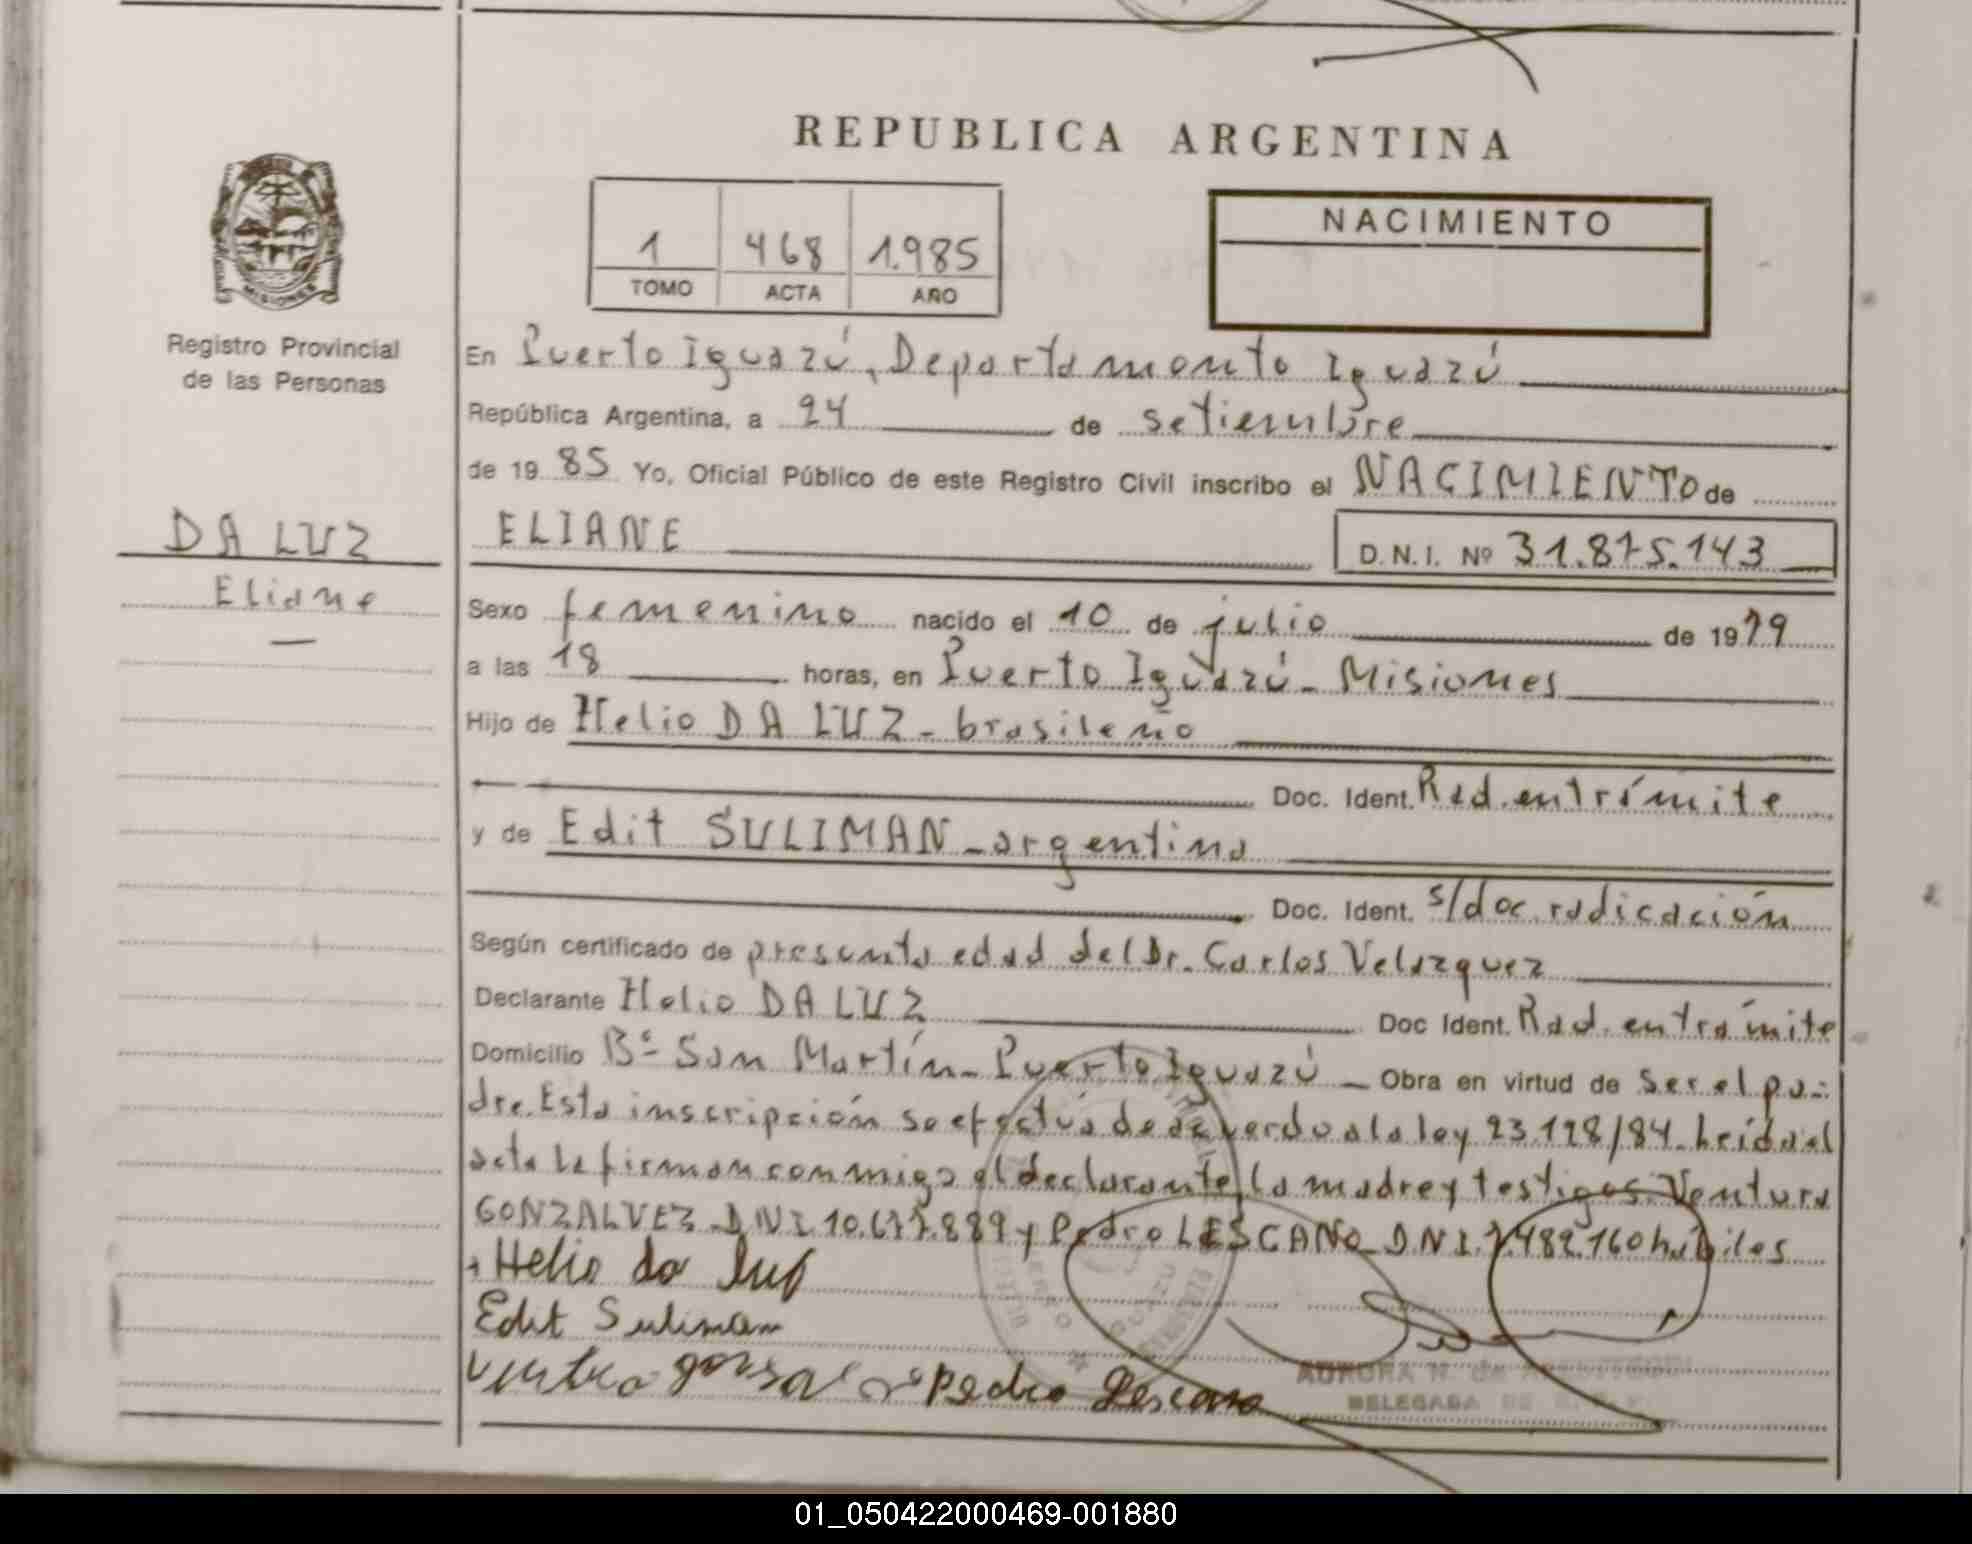 REPUBLICA ARGENTINA
NACIMIENTO
1 468 1.985
TOMO ACTA AÑO
MISIONES
Registro Provincial
de las Personas
DA LUZ
Eliane
En Puerto Iguazú, Departamento Iguazú
República Argentina, a 24 de setiembre
de 19 85 Yo, Oficial Público de este Registro Civil inscribo el NACIMIENTO de
ELIANE D.N.I. Nº 31.875.143
Sexo femenino nacido el 10 de julio de 1979
a las 18 horas, en Puerto Iguazú - Misiones
Hijo de Helio DA LUZ - brasileño
Doc. Ident. Rad. en trámite
y de Edit SULIMAN - argentina
Doc. Ident. s/doc. radicación
Según certificado de presunta edad del Dr. Carlos Velazquez
Declarante Helio DA LUZ Doc Ident. Rad. en trámite
Domicilio Bº San Martín - Puerto Iguazú - Obra en virtud de ser el pa-
dre. Esta inscripción se efectúa de acuerdo a la ley 23.128/84. Leída el
acta la firman conmigo el declarante, la madre y testigos: Ventura
GONZALVEZ - DNI 10.677.889 y Pedro LESCANO - DNI 7.482.160 hábiles
Helio da Luz
Edit Suliman
Pedro Lescano
AURORA N. de
DELEGADA
01_050422000469-001880